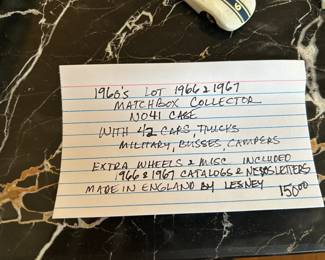 1960's LOT 1966 & 1967
MATCHBOX COLLECTOR
NO 41 CASE
WITH 42 CARS, TRUCKS
MILITARY, BUSSES, CAMPERS
EXTRA WHEELS & MISC INCLUDED
1966 & 1967 CATALOGS & NEWSLETTERS
MADE IN ENGLAND BY LESNEY 150.00